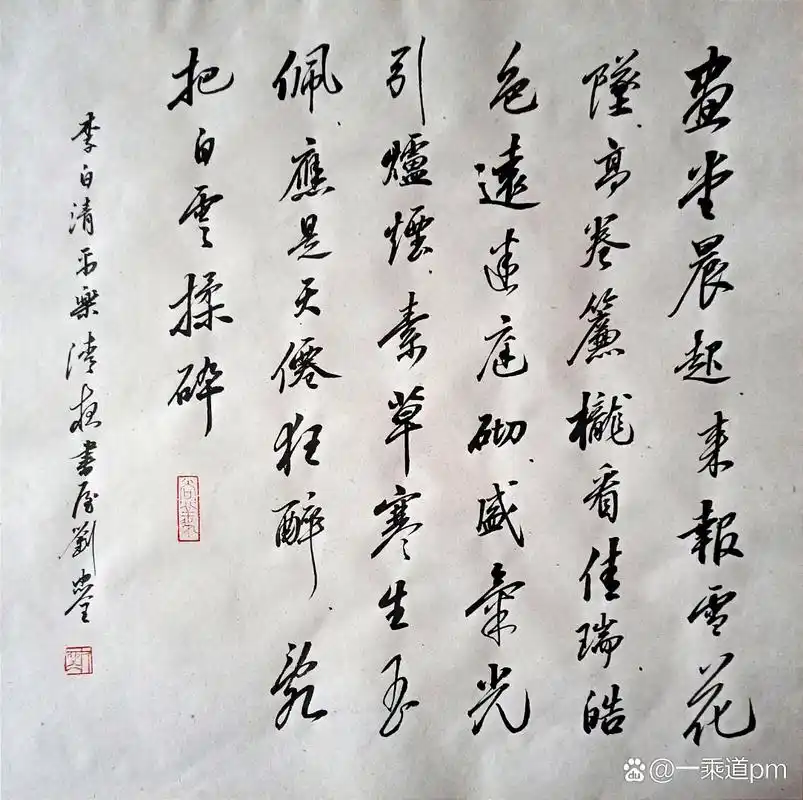 畫堂晨起来報雪花
墜高卷簾櫳看佳瑞皓
色遠迷庭砌盛氣光
引爐煙素草寒生玉
佩應是天僊狂醉亂
把白雲揉碎
李白清平樂清書屋劉忠
@一乘道pm